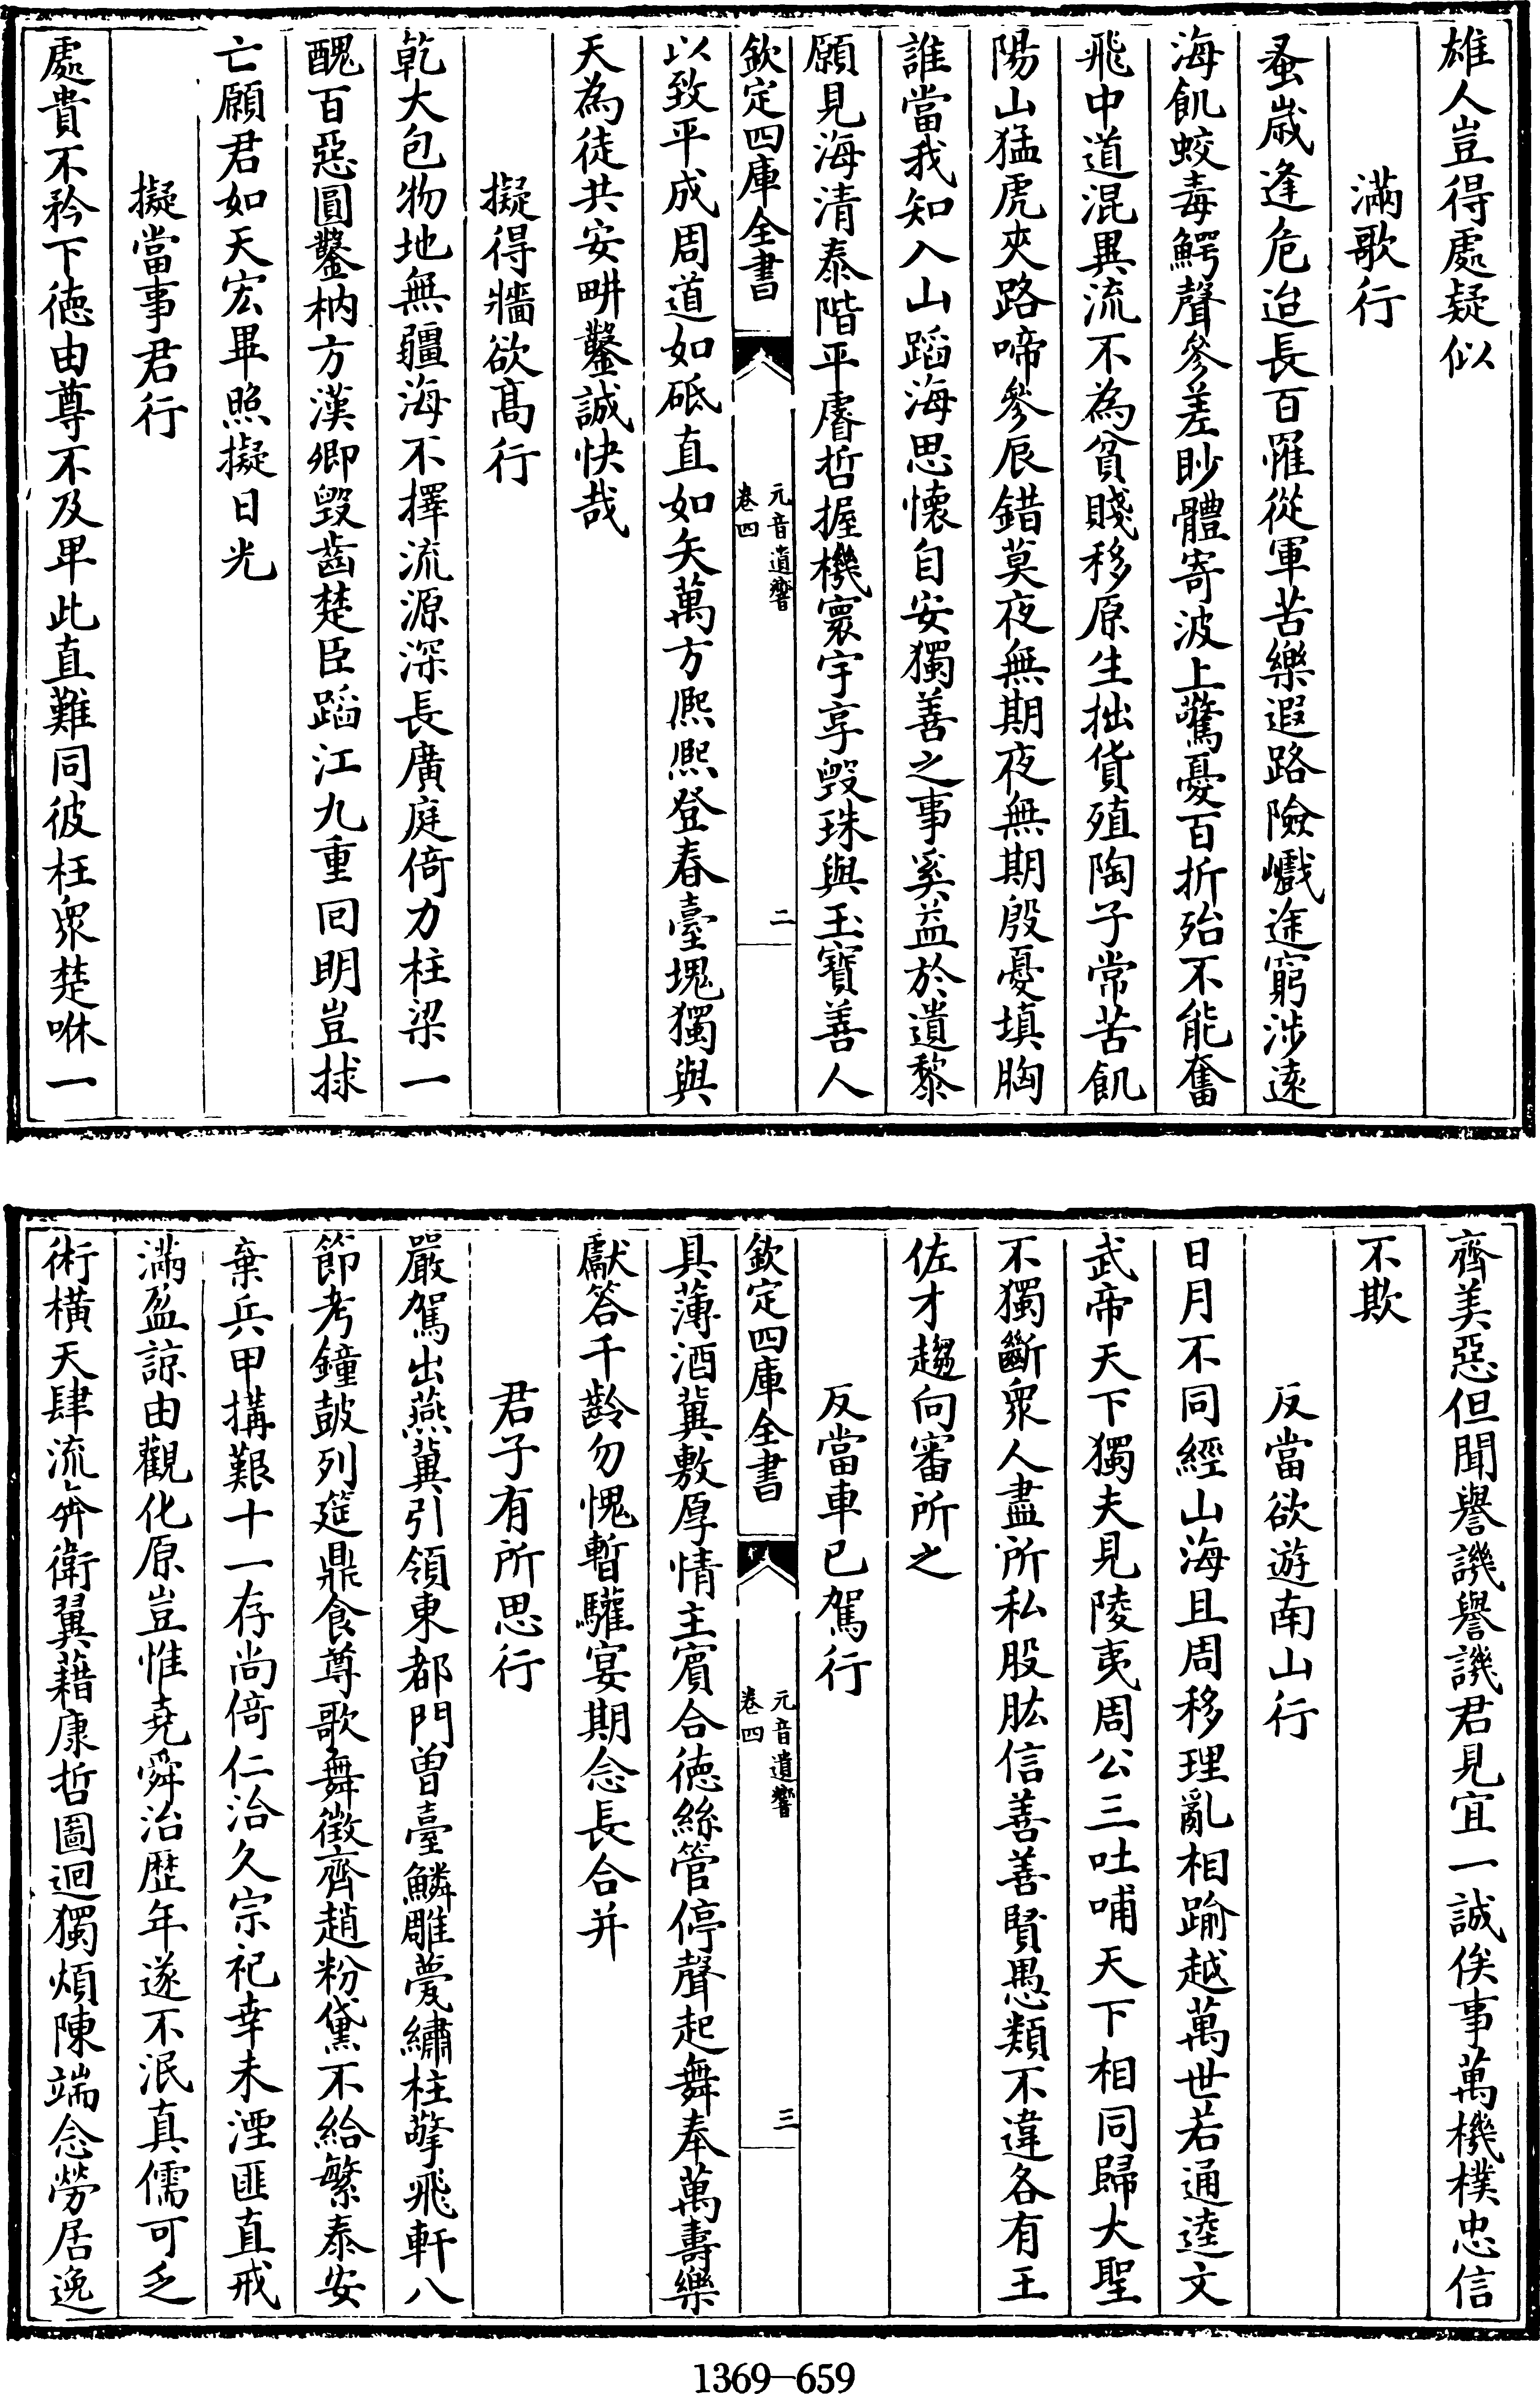 雄人豈得處疑似
滿歌行
蚤歲逢危迨長百罹從軍苦樂遐路險巇途窮涉遠
海飢蛟毒鰐聲參差眇體寄波上驚憂百折殆不能奮
飛中道混異流不為貧賤移原生拙貨殖陶子常苦飢
陽山猛虎夾路啼參辰錯莫夜無期夜無期殷憂填胸
誰當我知入山蹈海思懷自安獨善之事奚益於遺黎
願見海清泰階平睿哲握機寰宇享毀珠與玉寶善人
欽定四庫全書
元音遺響
卷四
二
以致平成周道如砥直如矢萬方熈熈登春臺塊獨與
天為徒共安畊鑿誠快哉
擬得牆欲髙行
乾大包物地無疆海不擇流源深長廣庭倚力柱梁一
醜百惡圓鑿枘方漢卿毀齒楚臣蹈江九重囘明豈捄
亡願君如天宏畢照擬日光
擬當事君行
處貴不矜下徳由尊不及卑此直難同彼枉衆楚咻一
齊美惡但聞譽譏譽譏君見宜一誠俟事萬機樸忠信
不欺
反當欲遊南山行
日月不同經山海且周移理亂相踰越萬世若通逵文
武帝天下獨夫見陵夷周公三吐哺天下相同歸大聖
不獨斷衆人盡所私股肱信善善賢愚類不違各有王
佐才趨向審所之
反當車已駕行
欽定四庫全書
元音遺響
卷四
三
具薄酒冀敷厚情主賓合徳絲管停聲起舞奉萬壽樂
獻答千齡勿愧暫驩宴期念長合并
君子有所思行
嚴駕出燕冀引領東都門曾臺鱗雕甍繡柱擎飛軒八
節考鐘鼓列筵鼎食尊歌舞徴齊趙粉黛不給繁泰安
棄兵甲搆艱十一存尚倚仁治久宗祀幸未湮匪直戒
滿盈諒由觀化原豈惟堯舜治歴年遂不泯真儒可乏
術橫天肆流奔衛翼藉康哲圖迴獨煩陳端念勞居逸
1369－659